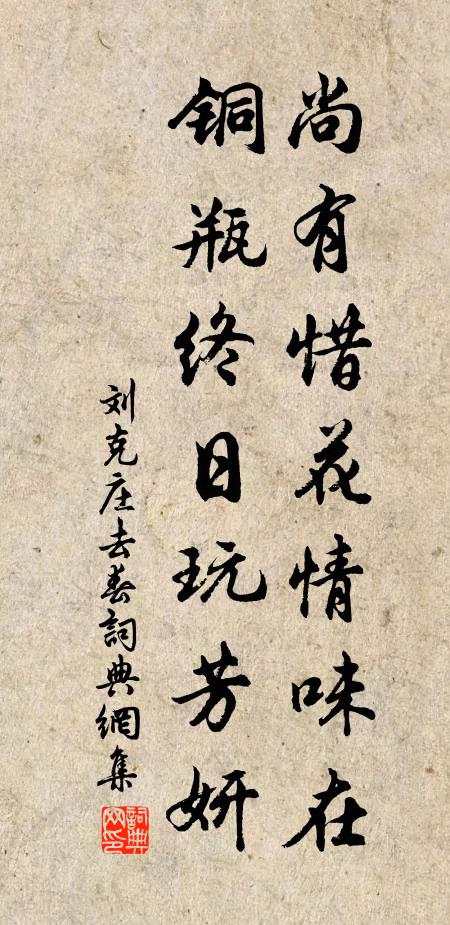 尚有惜花情味在
铜瓶终日玩芳妍
刘克庄去春詞典網集
詞典网印